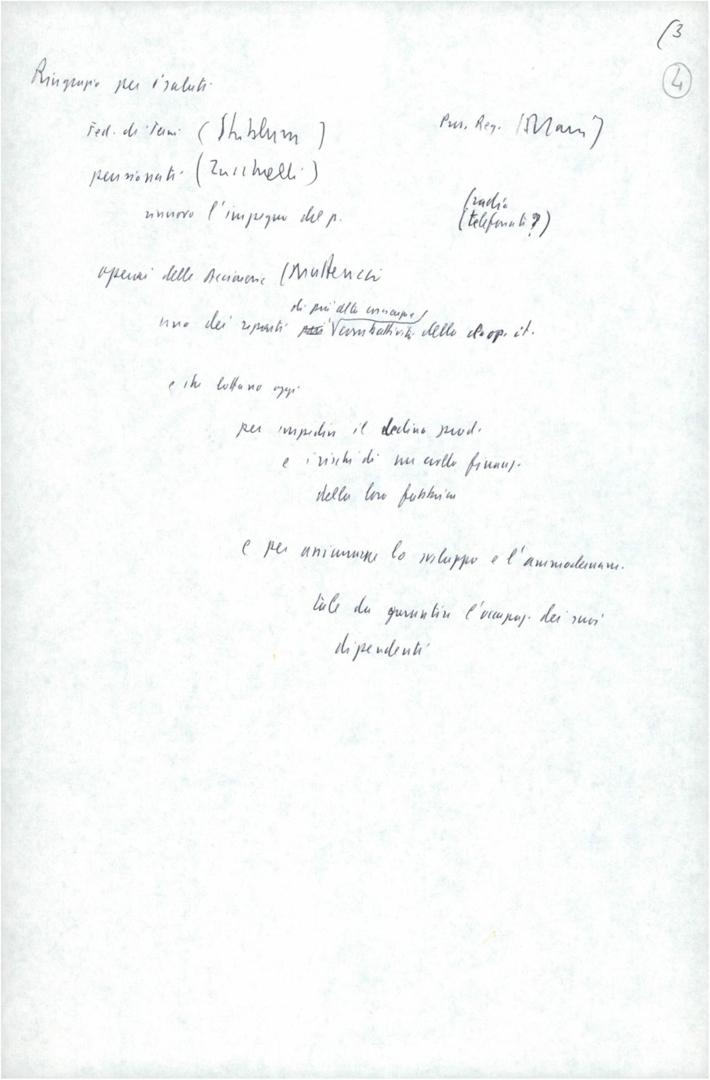 (3
4
Ringrazio per i saluti
Fed. di Terni (
Pres. Reg.
pensionati (Zucchelli)
rinnovo l'impegno del p.
(radio
(telefonati?)
operai delle Acciaierie (
di più alta
uno dei reparti combattività della cl. op. it.
e che lottano oggi
per impedire il declino prod.
e i rischi di un crollo finanz.
della loro fabbrica
e per assicurare lo sviluppo e l'ammodernam.
tale da garantire l'occupaz. dei suoi
dipendenti